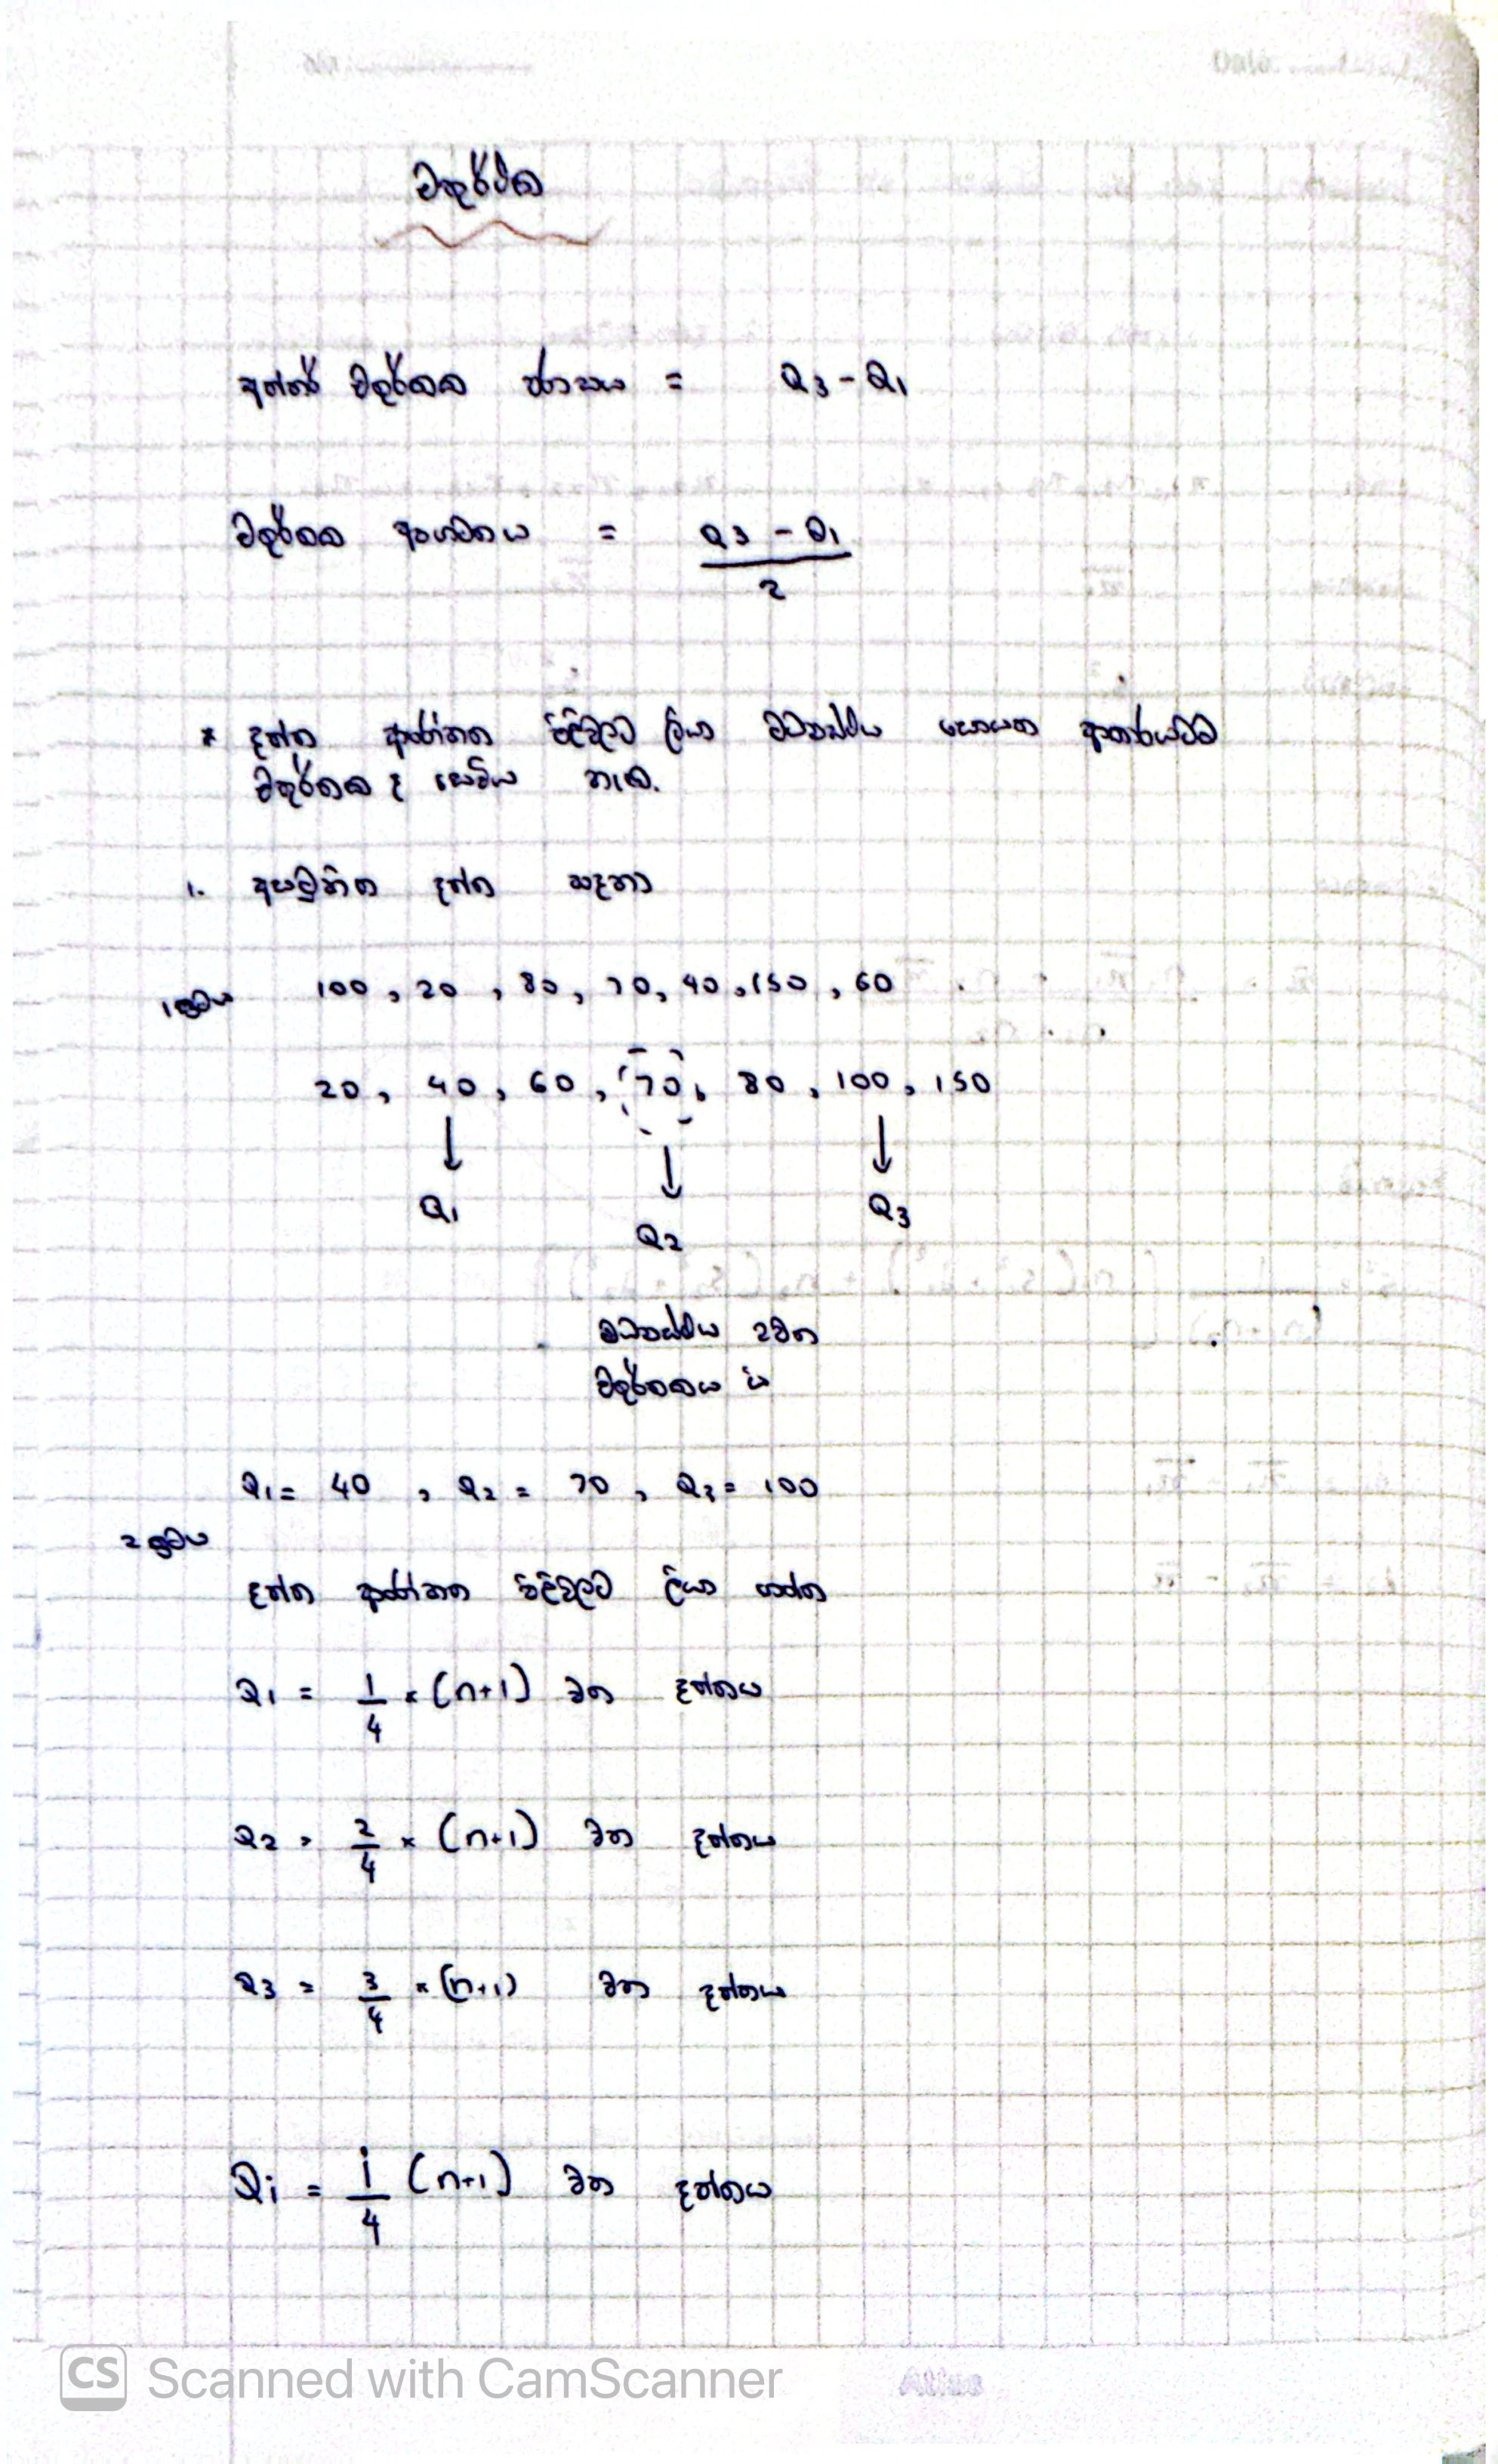 චතුර්ථක
අන්තර් චතුර්ථක පරාසය = Q3 - Q1
චතුර්ථක අපගමනය = Q3 - Q1
2
* දත්ත ආරෝහණ පිළිවලට ලියා මධ්‍යස්ථය සොයන ආකාරයටම
චතුර්ථක ද සෙවිය හැක.
1. අසමූහිත දත්ත සඳහා
1 ක්‍රමය 100, 20, 80, 70, 40, 150, 60
20, 40, 60, 70, 80, 100, 150
Q1 Q2 Q3
මධ්‍යස්ථය 2වන
චතුර්ථකය ය
Q1 = 40 , Q2 = 70 , Q3 = 100
2 ක්‍රමය
දත්ත ආරෝහණ පිළිවලට ලියා ගන්න
Q1 = 1/4 × (n+1) වන දත්තය
Q2 = 2/4 × (n+1) වන දත්තය
Q3 = 3/4 × (n+1) වන දත්තය
Qi = i/4 (n+1) වන දත්තය
CS Scanned with CamScanner